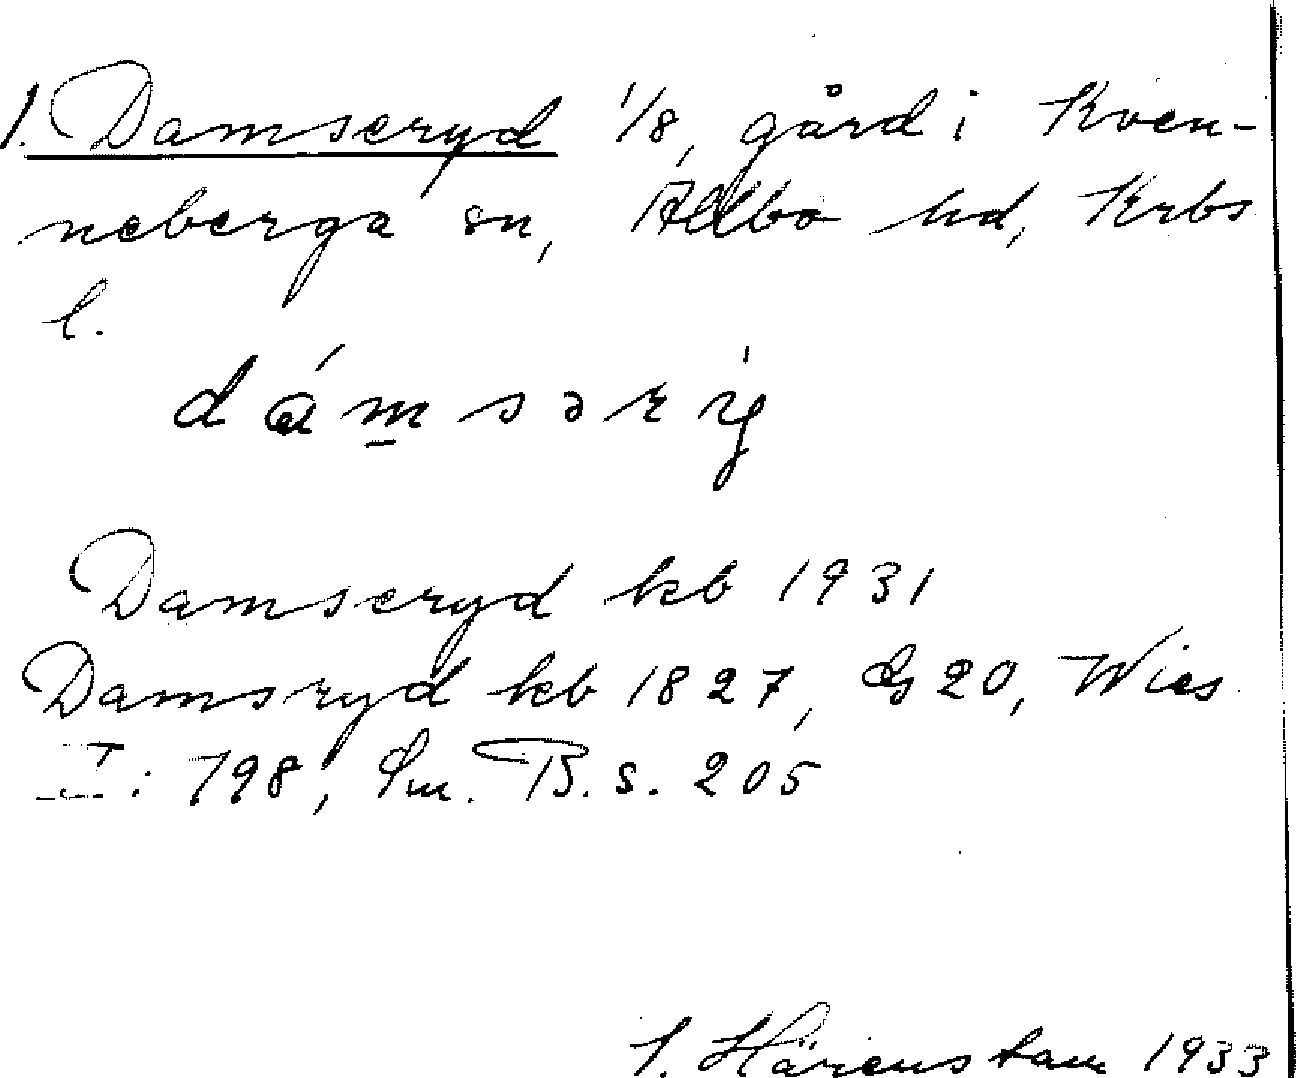 1. Damseryd 1/8, gård i Kven-
neberga sn, Allbo hd, Krbs
l.
dámsəri̯
Damseryd kb 1931
Damsryd kb 1827, Gs 20, Wies
I: 798, Sm. B. s. 205
S. Härenstam 1933